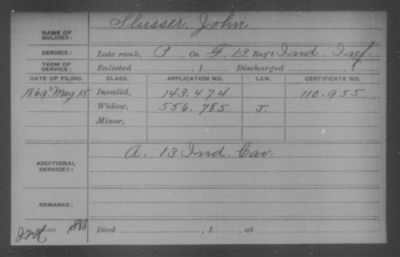 NAME OF SOLDIER: Slusser, John
SERVICE: Late rank, P Co. F, 13 Reg't Ind Inf
TERM OF SERVICE: Enlisted , 1 Discharged , 1
DATE OF FILING. CLASS. APPLICATION NO. LAW. CERTIFICATE NO.
1869 May 15 Invalid, 143.474 110.955
Widow, 556.785 J.
Minor,
ADDITIONAL SERVICES: A. 13 Ind Cav.
REMARKS:
Died , 1 , at